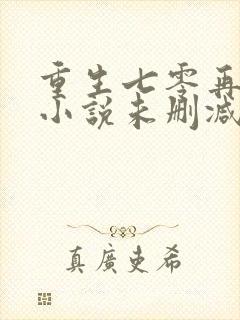 重生七零再
小说未删减
真廣史希